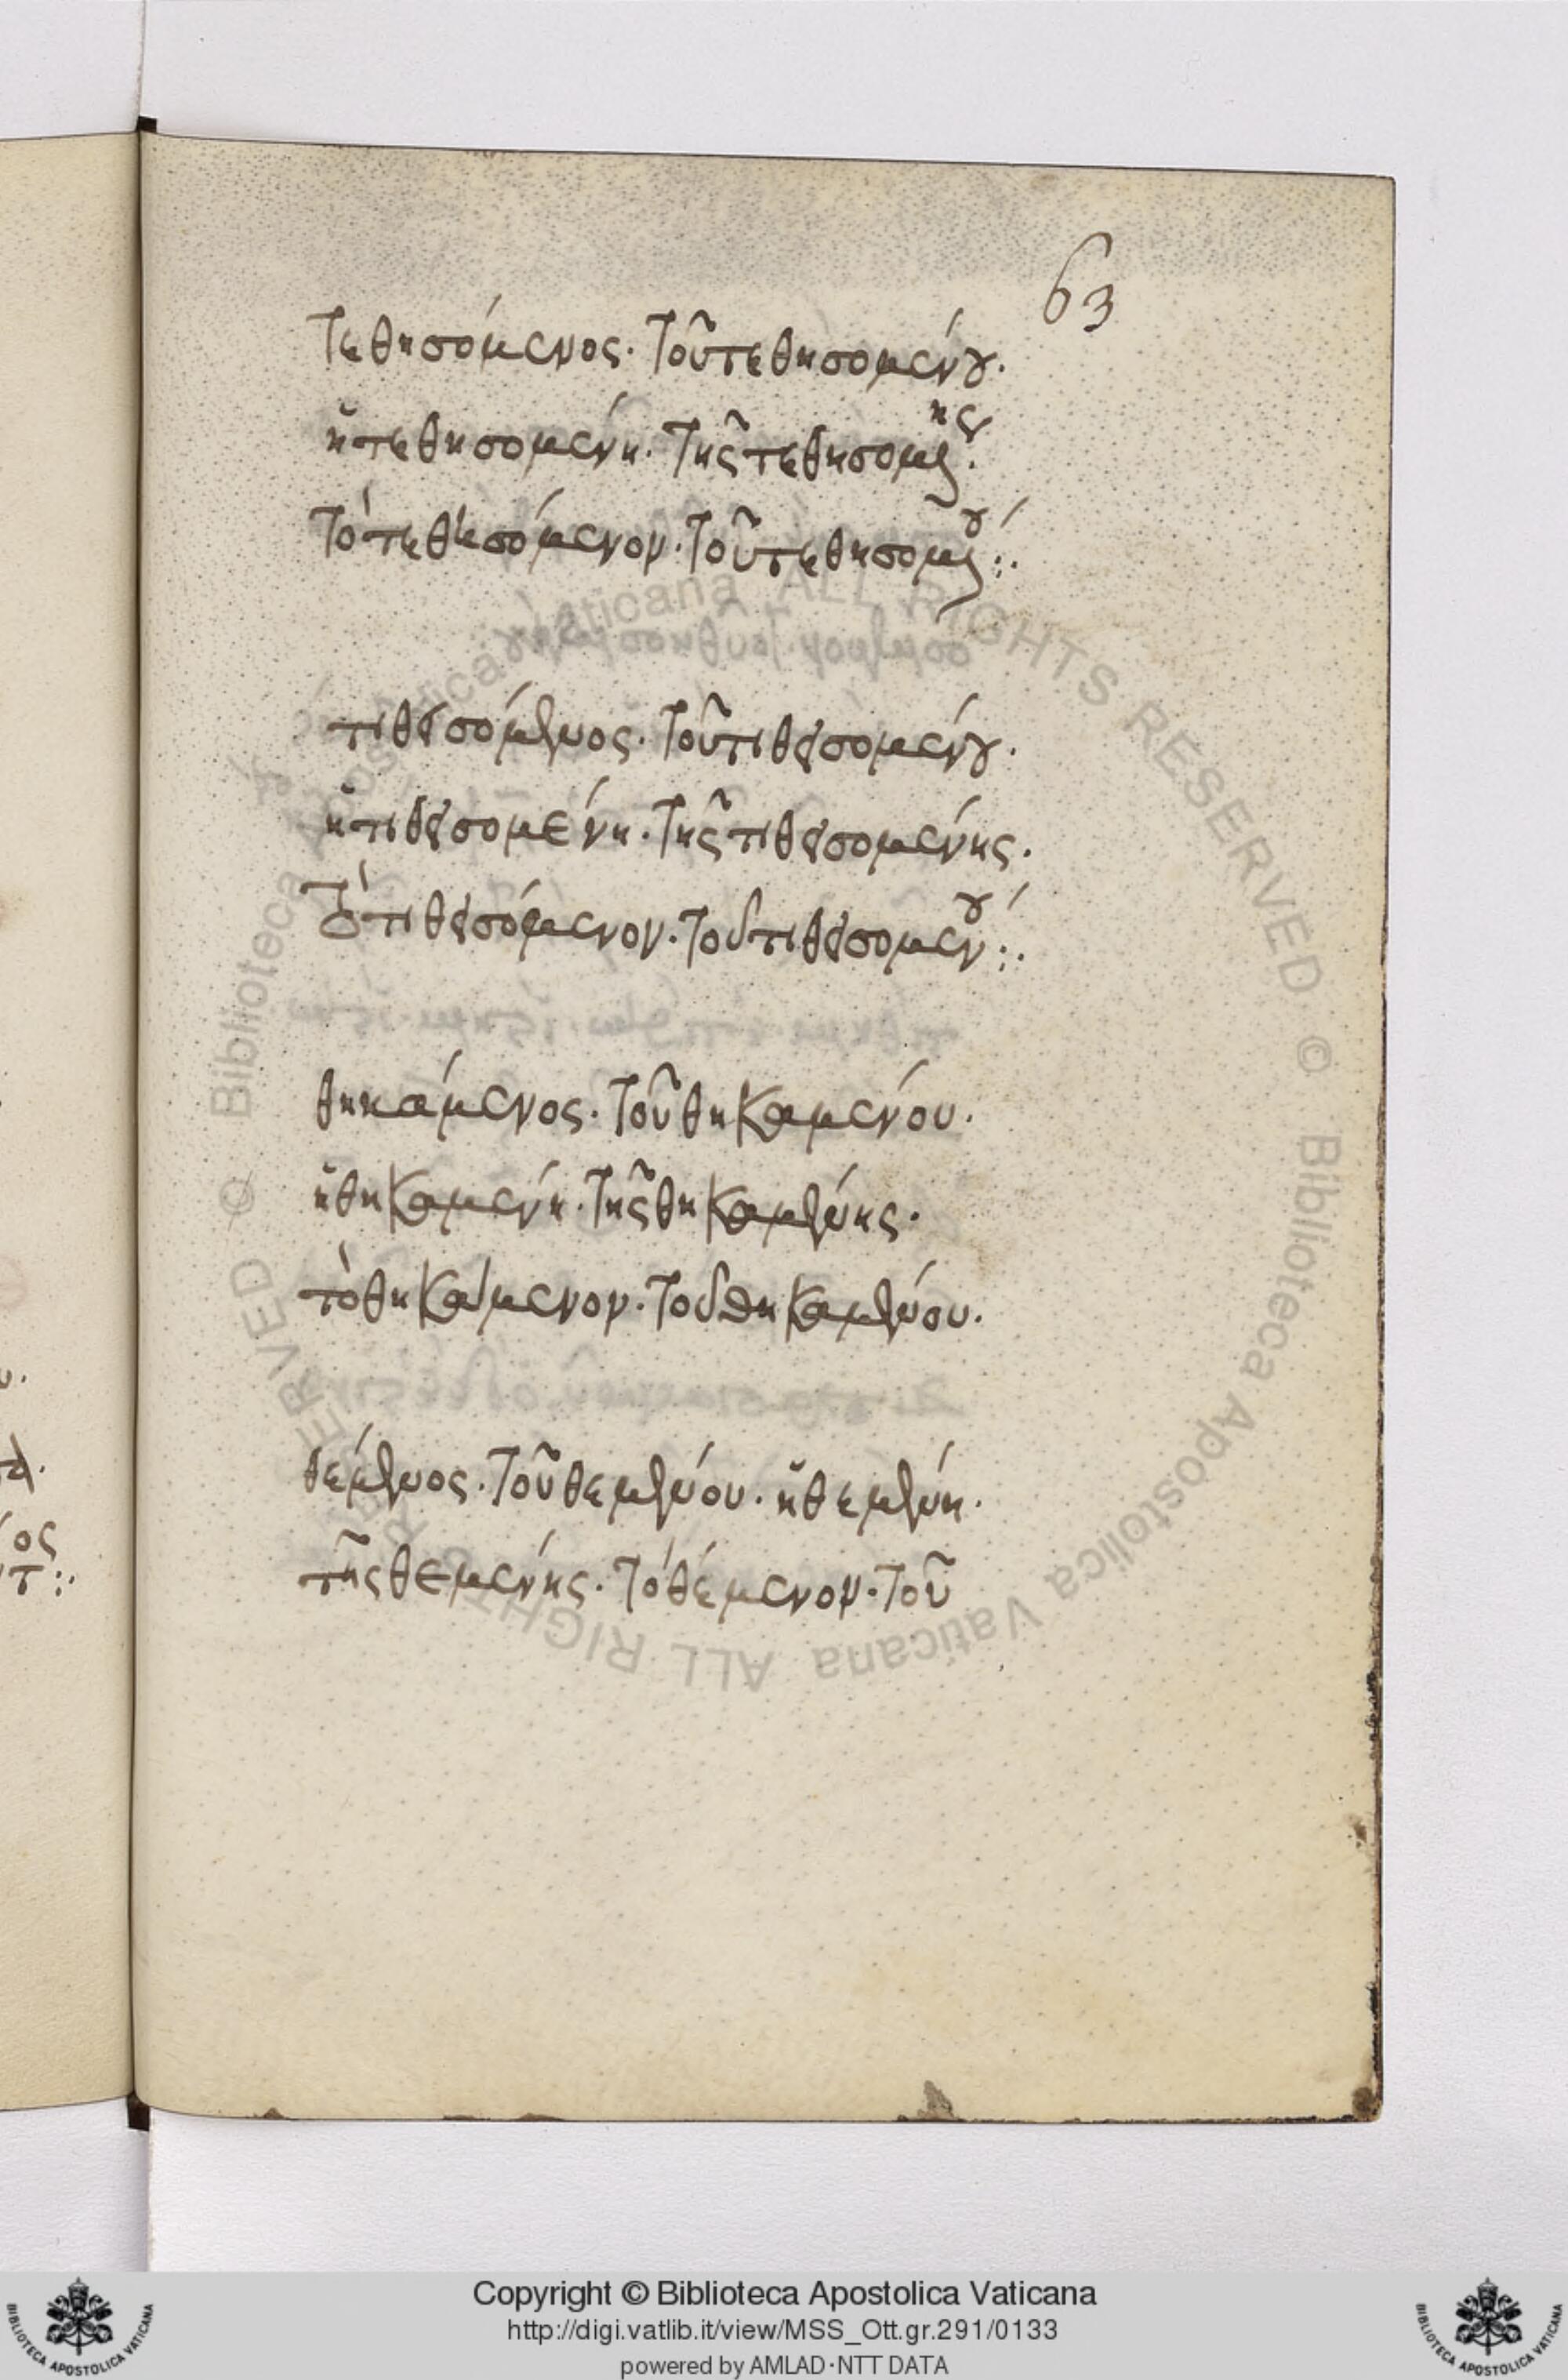 63
τεθησόμενος· τοῦ τεθησομένου·
ἡ τεθησομένη· τῆς τεθησομένης·
τὸ τεθησόμενον· τοῦ τεθησομένου :·
τιθεσόμενος· τοῦ τιθεσομένου·
ἡ τιθεσομένη· τῆς τιθεσομένης·
τὸ τιθεσόμενον· τοῦ τιθεσομένου :·
θηκάμενος· τοῦ θηκαμένου·
ἡ θηκαμένη· τῆς θηκαμένης·
τὸ θηκάμενον· τοῦ θηκαμένου·
θέμενος· τοῦ θεμένου· ἡ θεμένη·
τῆς θεμένης· τὸ θέμενον· τοῦ
Copyright © Biblioteca Apostolica Vaticana
http://digi.vatlib.it/view/MSS_Ott.gr.291/0133
powered by AMLAD·NTT DATA
BIBLIOTECA APOSTOLICA VATICANA
BIBLIOTECA APOSTOLICA VATICANA
© Biblioteca Apostolica Vaticana ALL RIGHTS RESERVED © Biblioteca Apostolica Vaticana ALL RIGHTS RESERVED